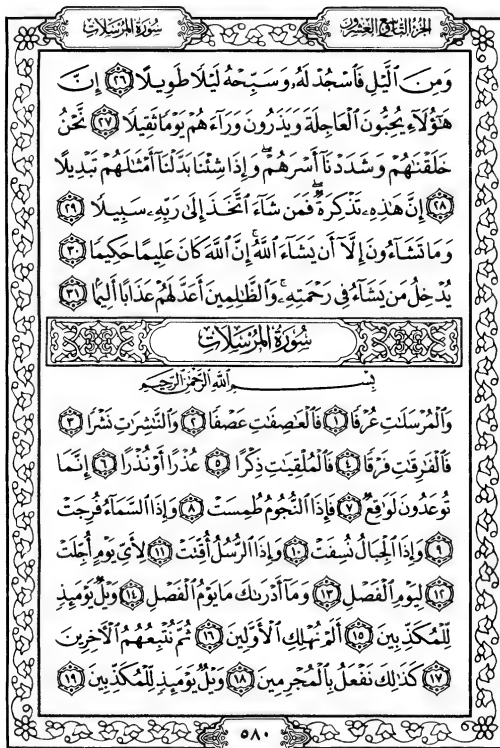 الجزء التاسع والعشرون
سورة المرسلات
وَمِنَ ٱلَّيْلِ فَٱسْجُدْ لَهُۥ وَسَبِّحْهُ لَيْلًا طَوِيلًا ٢٦ إِنَّ
هَٰٓؤُلَآءِ يُحِبُّونَ ٱلْعَاجِلَةَ وَيَذَرُونَ وَرَآءَهُمْ يَوْمًا ثَقِيلًا ٢٧ نَّحْنُ
خَلَقْنَٰهُمْ وَشَدَدْنَآ أَسْرَهُمْ ۖ وَإِذَا شِئْنَا بَدَّلْنَآ أَمْثَٰلَهُمْ تَبْدِيلًا
٢٨ إِنَّ هَٰذِهِۦ تَذْكِرَةٌ ۖ فَمَن شَآءَ ٱتَّخَذَ إِلَىٰ رَبِّهِۦ سَبِيلًا ٢٩
وَمَا تَشَآءُونَ إِلَّآ أَن يَشَآءَ ٱللَّهُ ۚ إِنَّ ٱللَّهَ كَانَ عَلِيمًا حَكِيمًا ٣٠
يُدْخِلُ مَن يَشَآءُ فِى رَحْمَتِهِۦ ۚ وَٱلظَّٰلِمِينَ أَعَدَّ لَهُمْ عَذَابًا أَلِيمًۢا ٣١
سورة المرسلات
بسم الله الرحمن الرحيم
وَٱلْمُرْسَلَٰتِ عُرْفًا ١ فَٱلْعَٰصِفَٰتِ عَصْفًا ٢ وَٱلنَّٰشِرَٰتِ نَشْرًا ٣
فَٱلْفَٰرِقَٰتِ فَرْقًا ٤ فَٱلْمُلْقِيَٰتِ ذِكْرًا ٥ عُذْرًا أَوْ نُذْرًا ٦ إِنَّمَا
تُوعَدُونَ لَوَٰقِعٌ ٧ فَإِذَا ٱلنُّجُومُ طُمِسَتْ ٨ وَإِذَا ٱلسَّمَآءُ فُرِجَتْ
٩ وَإِذَا ٱلْجِبَالُ نُسِفَتْ ١٠ وَإِذَا ٱلرُّسُلُ أُقِّتَتْ ١١ لِأَىِّ يَوْمٍ أُجِّلَتْ
١٢ لِيَوْمِ ٱلْفَصْلِ ١٣ وَمَآ أَدْرَىٰكَ مَا يَوْمُ ٱلْفَصْلِ ١٤ وَيْلٌ يَوْمَئِذٍ
لِّلْمُكَذِّبِينَ ١٥ أَلَمْ نُهْلِكِ ٱلْأَوَّلِينَ ١٦ ثُمَّ نُتْبِعُهُمُ ٱلْءَاخِرِينَ
١٧ كَذَٰلِكَ نَفْعَلُ بِٱلْمُجْرِمِينَ ١٨ وَيْلٌ يَوْمَئِذٍ لِّلْمُكَذِّبِينَ ١٩
٥٨٠